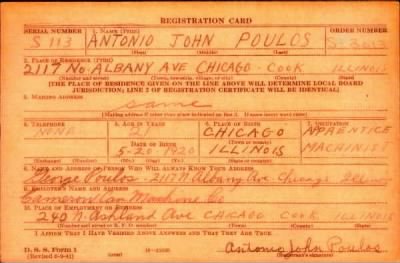 REGISTRATION CARD
SERIAL NUMBER 1. NAME (Print) ORDER NUMBER
S 113 ANTONIO JOHN POULOS
(First) (Middle) (Last)
2. PLACE OF RESIDENCE (Print)
2117 NO. ALBANY AVE CHICAGO - COOK ILLINOIS
(Number and street) (Town, township, village, or city) (County) (State)
[THE PLACE OF RESIDENCE GIVEN ON THE LINE ABOVE WILL DETERMINE LOCAL BOARD
JURISDICTION; LINE 2 OF REGISTRATION CERTIFICATE WILL BE IDENTICAL]
3. MAILING ADDRESS
same
4. TELEPHONE 5. AGE IN YEARS 6. PLACE OF BIRTH 7. OCCUPATION
NONE 21 CHICAGO APPRENTICE
DATE OF BIRTH (Town or county)
5-20-1920 ILLINOIS MACHINIST
(Mo.) (Day) (Yr.) (State or country)
8. NAME AND ADDRESS OF PERSON WHO WILL ALWAYS KNOW YOUR ADDRESS
George Poulos - 2117 N Albany Ave Chicago Illinois
9. EMPLOYER'S NAME AND ADDRESS
Cameron Can Machine Co
10. PLACE OF EMPLOYMENT OR BUSINESS
240 N. Ashland Ave CHICAGO COOK ILLINOIS
(Number and street or R. F. D. number) (Town) (County) (State)
I AFFIRM THAT I HAVE VERIFIED ABOVE ANSWERS AND THAT THEY ARE TRUE
D. S. S. Form 1 Antonio John Poulos
(Revised 6-9-41)